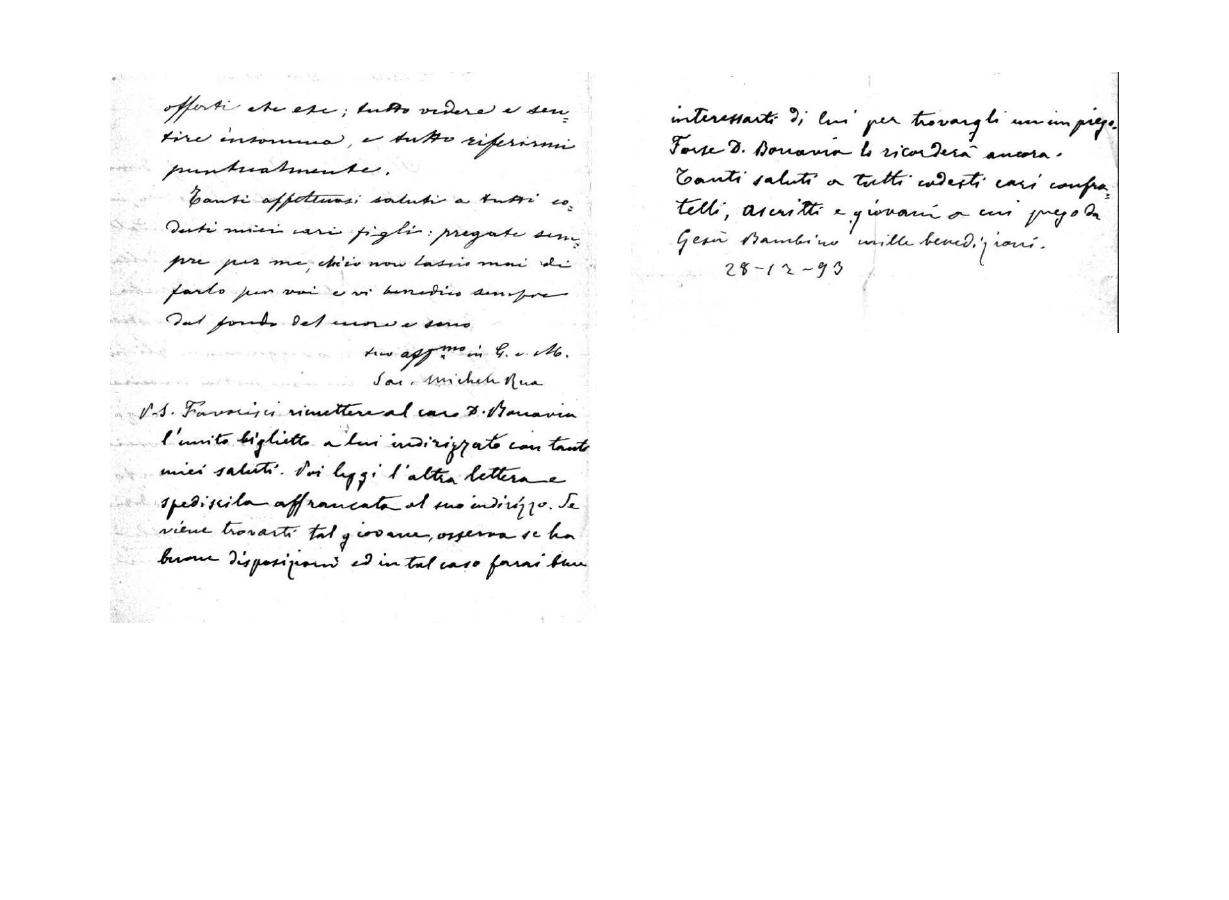 offerti etc etc; tutto vedere e sen=
tire insomma, e tutto riferirmi
puntualmente.
Tanti affettuosi saluti a tutti co=
desti miei cari figli: pregate sem=
pre per me, ch'io non lascio mai di
farlo per voi e vi benedico sempre
dal fondo del cuore e sono
tuo aff.mo in G. e M.
Sac. Michele Rua
P.S. Favorisci rimettere al caro D. Bonavia
l'unito biglietto a lui indirizzato con tanti
miei saluti. Poi leggi l'altra lettera e
spediscila affrancata al suo indirizzo. Se
viene trovarti tal giovane, osserva se ha
buone disposizioni ed in tal caso farai bene
interessarti di lui per trovargli un impiego.
Forse D. Bonavia lo ricorderà ancora.
Tanti saluti a tutti codesti cari confra=
telli, ascritti e giovani a cui prego da
Gesù Bambino mille benedizioni.
28-12-93